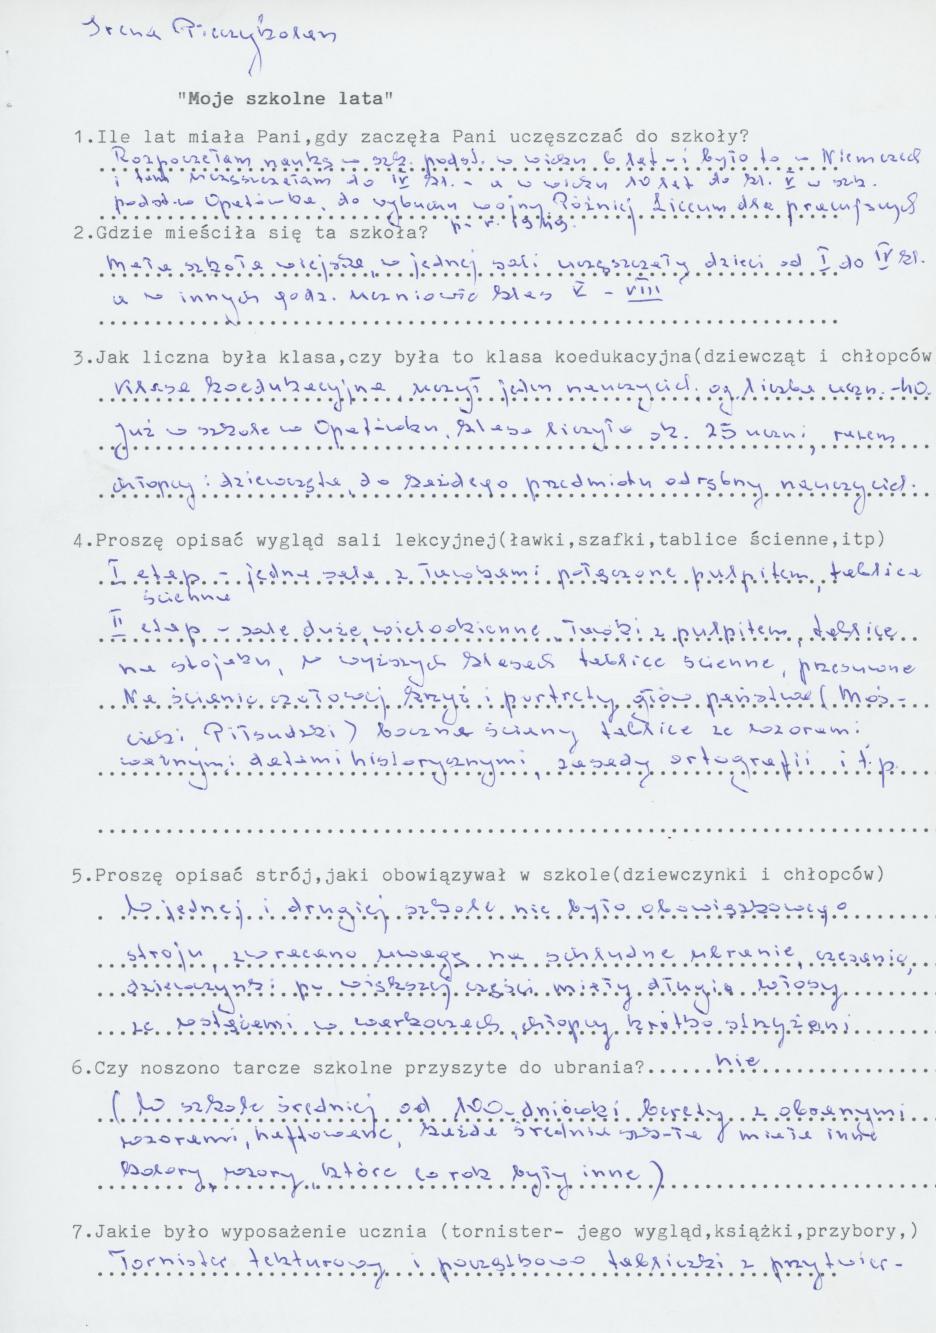 Irena Pieczykolan
"Moje szkolne lata"
1.Ile lat miała Pani,gdy zaczęła Pani uczęszczać do szkoły?
Rozpoczęłam naukę w szk. podst. w wieku 6 lat - i było to w Niemczech
i tam uczęszczałam do IV kl. - a w wieku 10 lat do kl. V w szk.
podst. w Opatówku, do wybuchu wojny Później Liceum dla pracujących
p. r. 1949.
2.Gdzie mieściła się ta szkoła?
Mała szkoła wiejska, w jednej sali uczęszczały dzieci od I do IV kl.
a w innych godz. uczniowie klas V - VIII
3.Jak liczna była klasa,czy była to klasa koedukacyjna(dziewcząt i chłopców
Klasa koedukacyjna, uczył jeden nauczyciel. og. liczba uczn. -40.
Już w szkole w Opatówku, klasa liczyła ok. 25 uczni, razem
chłopcy i dziewczęta, do każdego przedmiotu odrębny nauczyciel.
4.Proszę opisać wygląd sali lekcyjnej(ławki,szafki,tablice ścienne,itp)
I etap - jedna sala z ławkami połączone pulpitem, tablica
ścienna
II etap - sale duże, wielookienne, ławki z pulpitem, tablice
na stojaku, w wyższych klasach tablice ścienne, przesuwane
Na ścianie czołowej krzyż i portrety głów państwa (Moś-
cicki, Piłsudzki) boczne ściany tablice ze wzorami,
ważnymi datami historycznymi, zasady ortografii i t.p.
5.Proszę opisać strój,jaki obowiązywał w szkole(dziewczynki i chłopców)
W jednej i drugiej szkole nie było obowiązkowego
stroju, zwracano uwagę na schludne ubranie, czesanie,
dziewczynki po większej części miały długie włosy
ze wstążkami w warkoczach, chłopcy krótko strzyżeni
6.Czy noszono tarcze szkolne przyszyte do ubrania?......nie
(W szkole średniej od 100-dniówki berety z obranymi
wzorami, haftowane, każda średnia szk-ła miała inne
kolory, wzory, które co rok były inne)
7.Jakie było wyposażenie ucznia (tornister- jego wygląd,książki,przybory,)
Tornister tekturowy i początkowo tabliczki z przytwier-